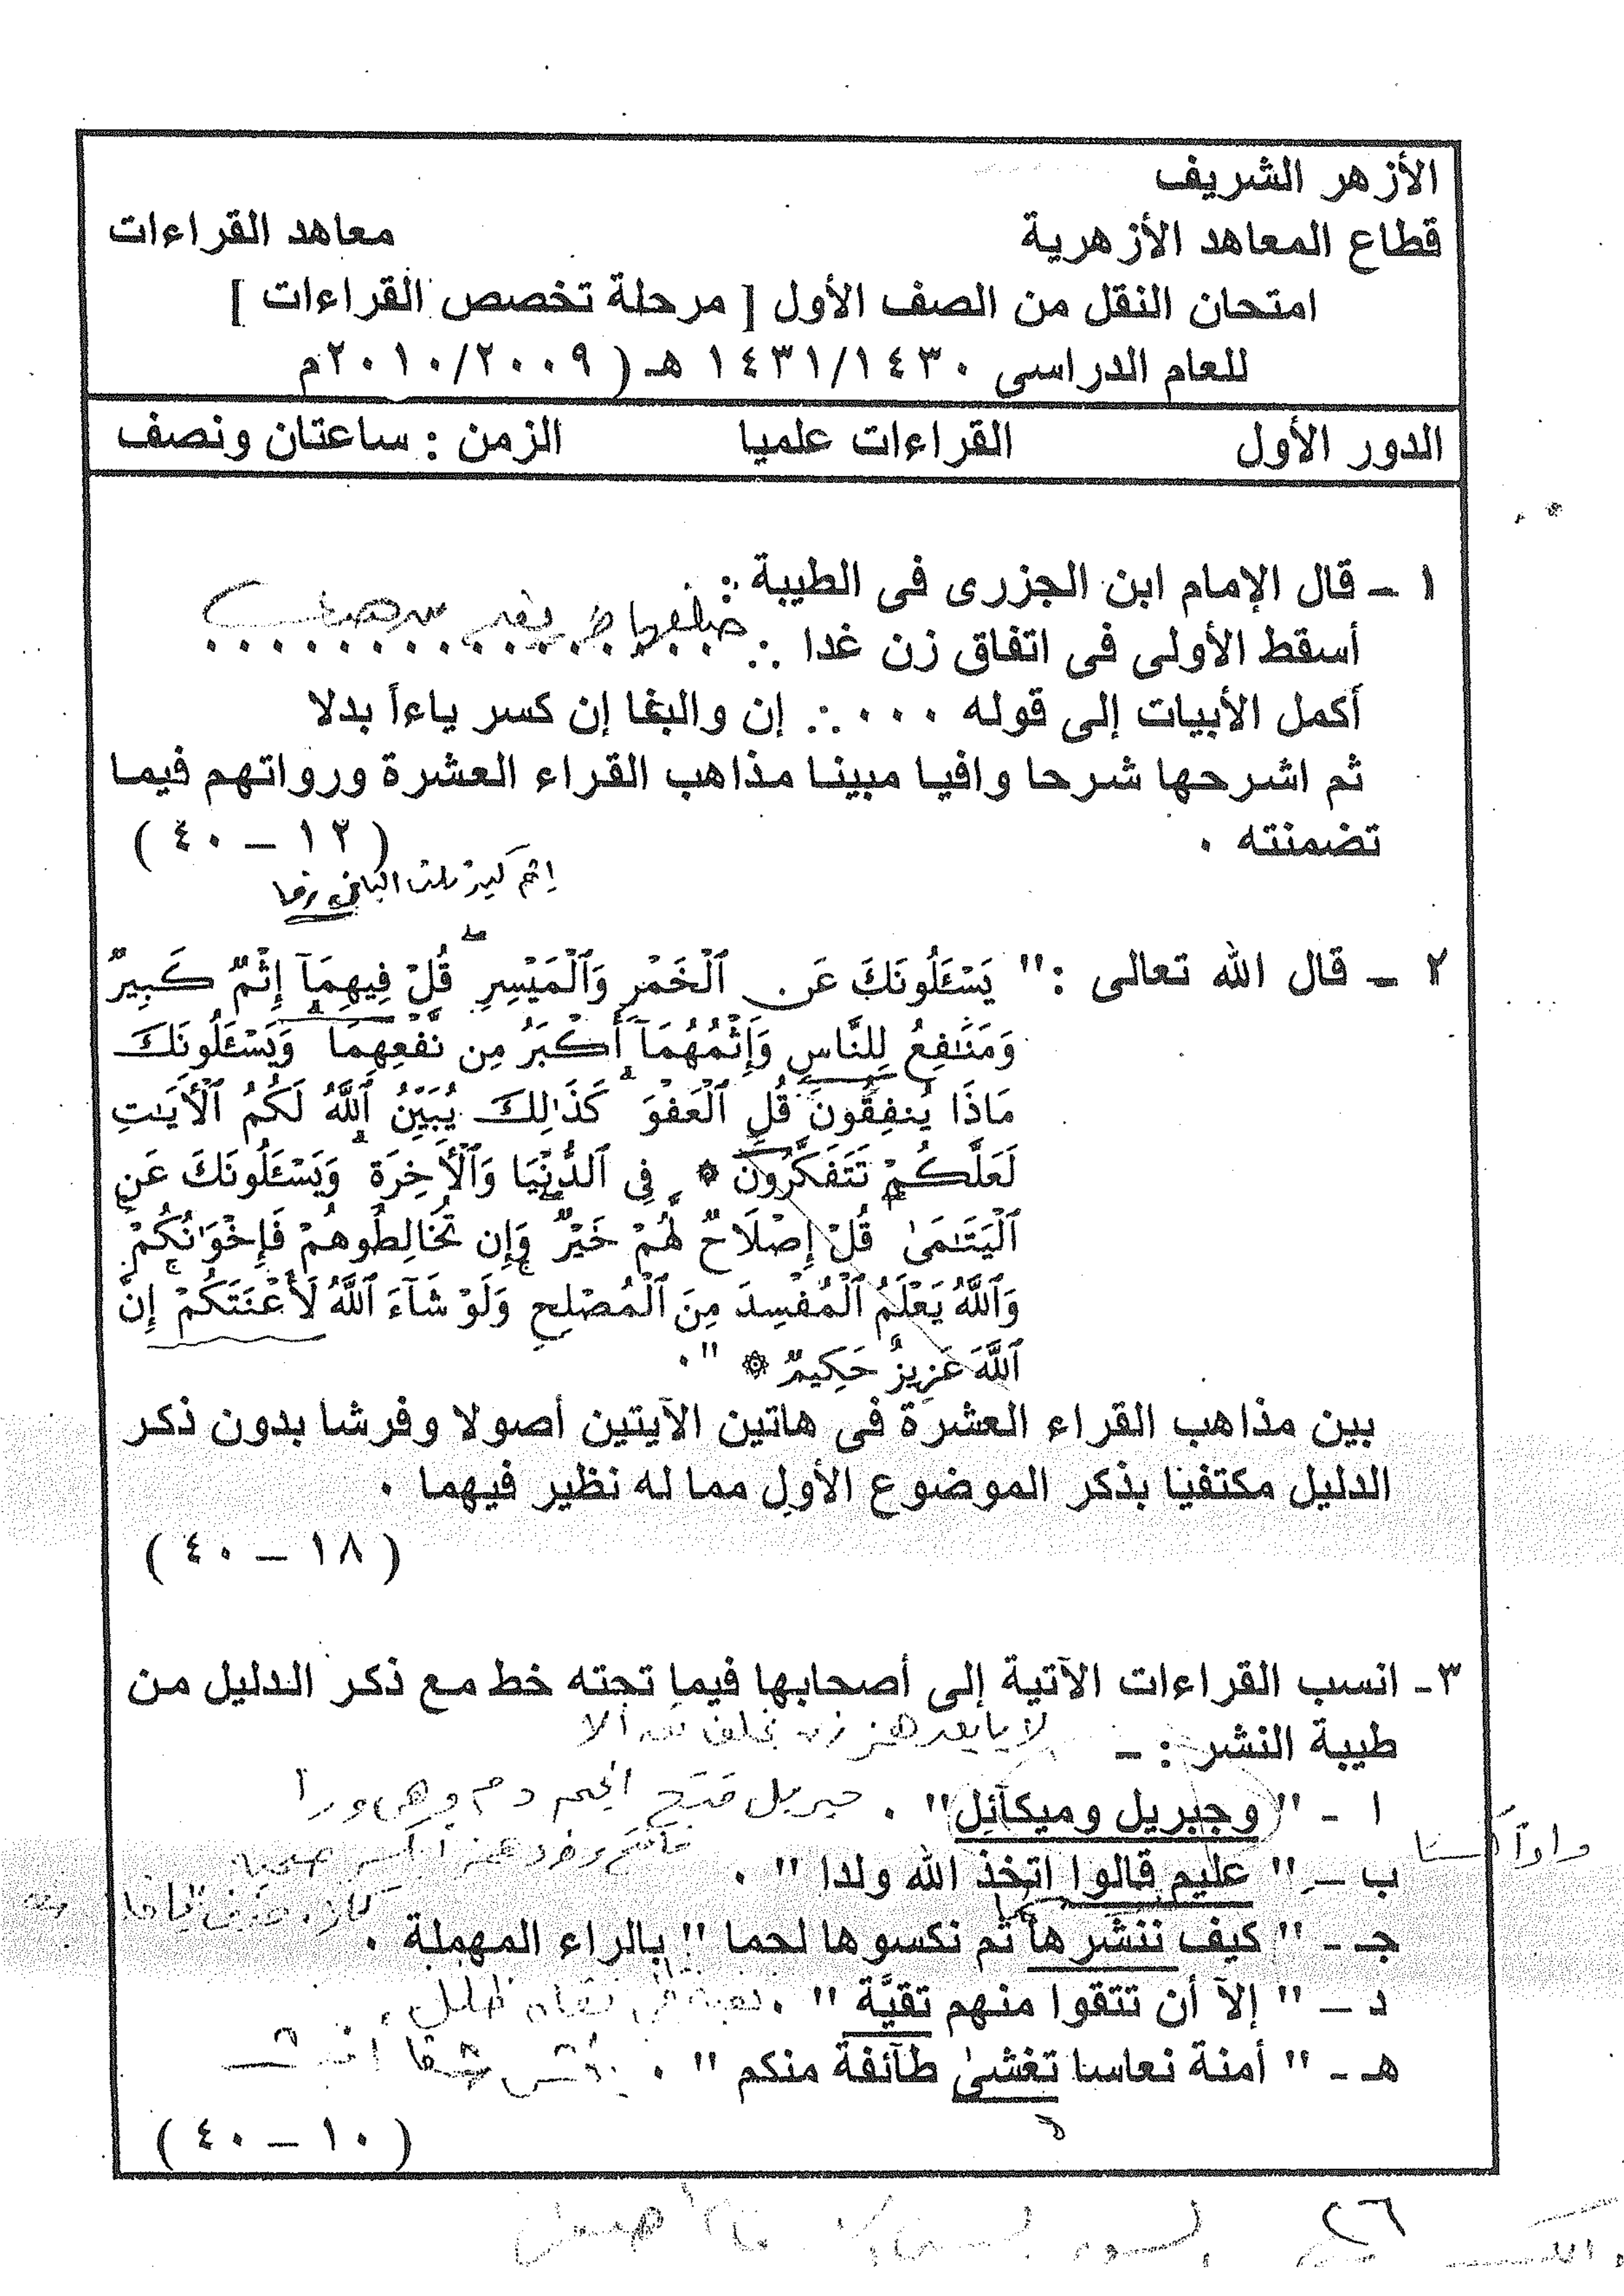 الأزهر الشريف
قطاع المعاهد الأزهرية معاهد القراءات
امتحان النقل من الصف الأول [ مرحلة تخصص القراءات ]
للعام الدراسى ١٤٣١/١٤٣٠ هـ ( ٢٠١٠/٢٠٠٩م
الدور الأول القراءات علميا الزمن : ساعتان ونصف
١ - قال الإمام ابن الجزرى فى الطيبة :
أسقط الأولى فى اتفاق زن غدا ∴ . . . . . . . . . . . . . . . .
أكمل الأبيات إلى قوله ٠٠٠ ∴ إن والبغا إن كسر ياءاً بدلا
ثم اشرحها شرحا وافيا مبينا مذاهب القراء العشرة ورواتهم فيما
تضمنته ٠ ( ١٢ – ٤٠ )
٢ - قال الله تعالى :" يَسْـَٔلُونَكَ عَنِ ٱلْخَمْرِ وَٱلْمَيْسِرِ ۖ قُلْ فِيهِمَآ إِثْمٌ كَبِيرٌ
وَمَنَـٰفِعُ لِلنَّاسِ وَإِثْمُهُمَآ أَكْبَرُ مِن نَّفْعِهِمَا ۗ وَيَسْـَٔلُونَكَ
مَاذَا يُنفِقُونَ قُلِ ٱلْعَفْوَ ۗ كَذَٰلِكَ يُبَيِّنُ ٱللَّهُ لَكُمُ ٱلْـَٔايَـٰتِ
لَعَلَّكُمْ تَتَفَكَّرُونَ * فِى ٱلدُّنْيَا وَٱلْـَٔاخِرَةِ ۗ وَيَسْـَٔلُونَكَ عَنِ
ٱلْيَتَـٰمَىٰ ۖ قُلْ إِصْلَاحٌ لَّهُمْ خَيْرٌ ۖ وَإِن تُخَالِطُوهُمْ فَإِخْوَٰنُكُمْ ۚ
وَٱللَّهُ يَعْلَمُ ٱلْمُفْسِدَ مِنَ ٱلْمُصْلِحِ ۚ وَلَوْ شَآءَ ٱللَّهُ لَأَعْنَتَكُمْ ۚ إِنَّ
ٱللَّهَ عَزِيزٌ حَكِيمٌ * "٠
بين مذاهب القراء العشرة فى هاتين الآيتين أصولا وفرشا بدون ذكر
الدليل مكتفيا بذكر الموضوع الأول مما له نظير فيهما ٠
( ١٨ – ٤٠ )
٣- انسب القراءات الآتية إلى أصحابها فيما تحته خط مع ذكر الدليل من
طيبة النشر : –
ا - " وجبريل وميكآئل" ٠
ب – " عليم قالوا اتخذ الله ولدا " ٠
جـ - " كيف ننشرها ثم نكسوها لحما " بالراء المهملة ٠
د – " إلآ أن تتقوا منهم تقيَّة " ٠
هـ - " أمنة نعاسا تغشىٰ طآئفة منكم " ٠
( ١٠ – ٤٠ )
٢٦